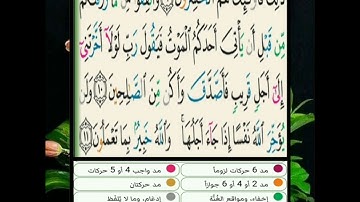 مِّن قَبْلِ أَن يَأْتِيَ أَحَدَكُمُ الْمَوْتُ فَيَقُولَ رَبِّ لَوْلَا أَخَّرْتَنِي
إِلَىٰ أَجَلٍ قَرِيبٍ فَأَصَّدَّقَ وَأَكُن مِّنَ الصَّالِحِينَ ١٠ وَلَن
يُؤَخِّرَ اللَّهُ نَفْسًا إِذَا جَاءَ أَجَلُهَا وَاللَّهُ خَبِيرٌ بِمَا تَعْمَلُونَ ١١
مد 6 حركات لزوماً مد واجب 4 أو 5 حركات
مد 2 أو 4 أو 6 جوازاً مد حركتان
إخفاء، ومواقع الغُنَّة إدغام، وما لا يُلفَظ